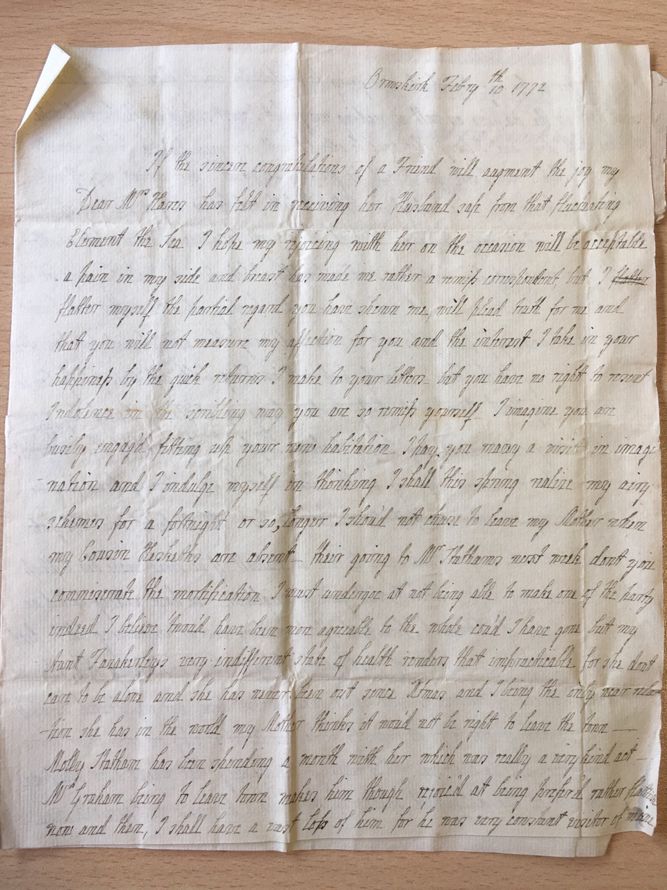 Ormskirk Febry 10th 1772
If the sincere congratulations of a Friend will augment the joy my
Dear Mrs Hares has felt in receiving her Husband safe from that fluctuating
Element the Sea I hope my rejoicing with her on the occasion will be acceptable
a pain in my side and breast has made me rather a remiss correspondent but I flatter
flatter myself the partial regard you have shown me will plead truth for me and
that you will not measure my affection for you and the interest I take in your
happiness by the quick returns I make to your letters but you have no right to resent
Indolence in the scribling way you are so remiss yourself I imagine you are
busily engag'd fitting up your new habitation I pay you many a visit in imagi
nation and I indulge myself in thinking I shall this spring realize my airy
schemes for a fortnight or so, longer I shou'd not chuse to leave my Mother when
my Cousin Heskeths are absent their going to Mr Stathams next week don't you
commiserate the mortification I must undergo at not being able to make one of the party
indeed I believe 'twou'd have been more agreeable to the whole cou'd I have gone but my
Aunt Fazakerleys very indifferent state of health renders that impracticable for she dont
care to be alone and she has never been out since Xmas and I being the only near rela
tion she has in the world my Mother thinks it wou'd not be right to leave the town
Molly Statham has been spending a month with her which was really a very kind act
Mr Graham being to leave town makes him though rejoic'd at being prefer'd rather
now and then, I shall have a vast loss of him for he was very constant visitor of mine